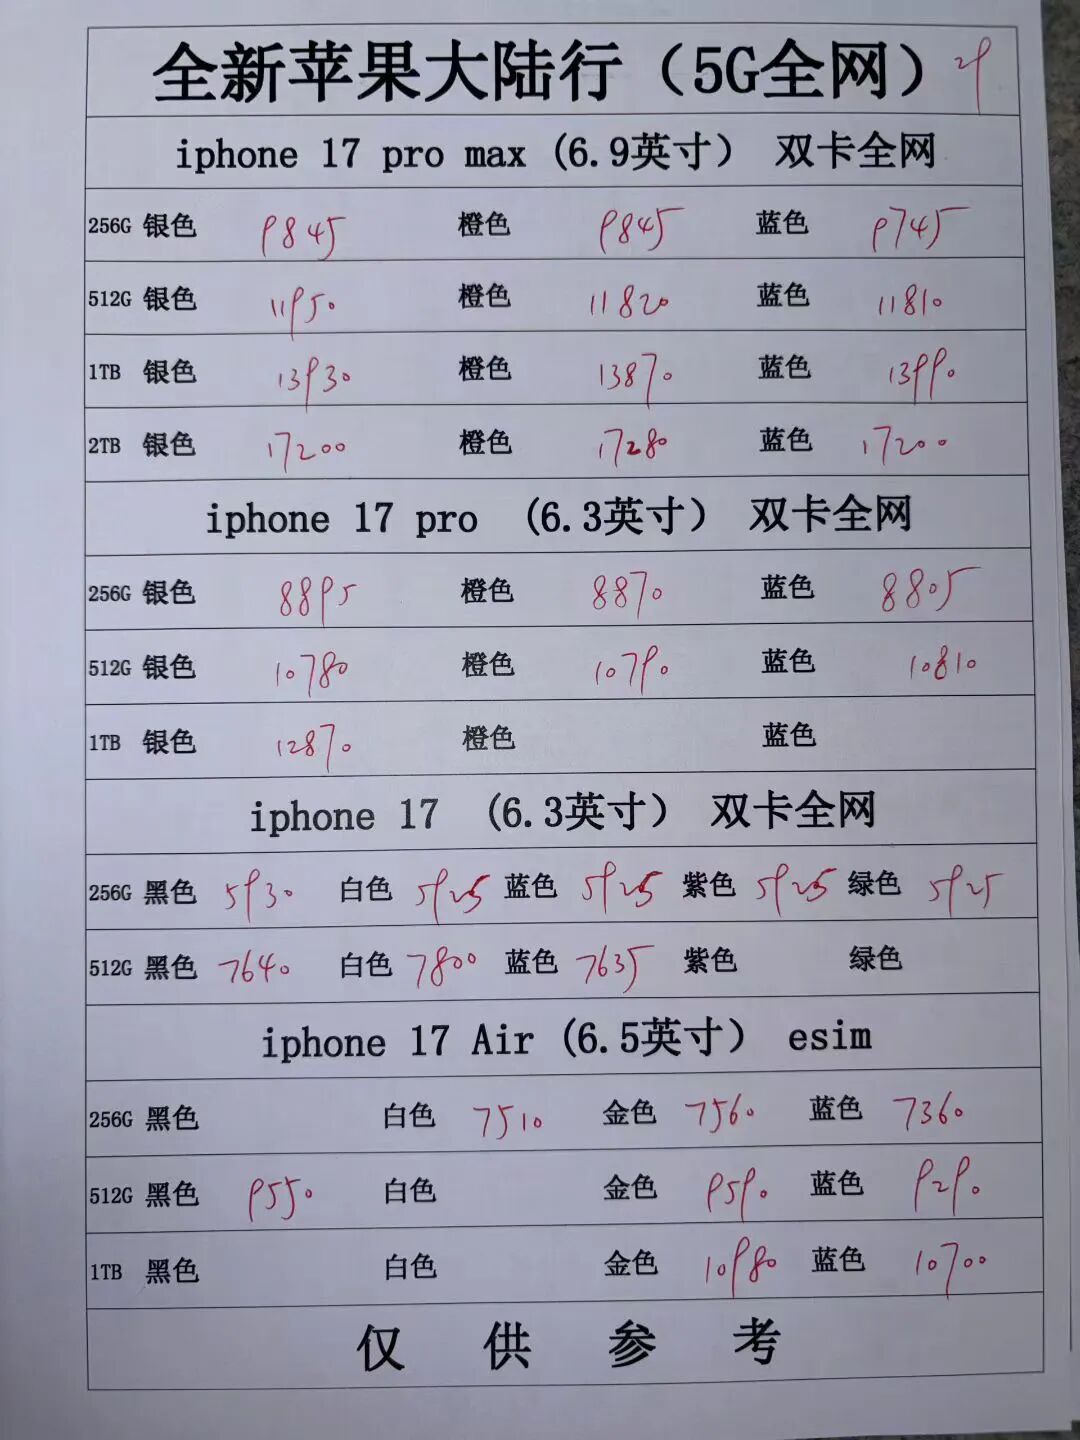 全新苹果大陆行（5G全网） 29
iphone 17 pro max (6.9英寸） 双卡全网
256G 银色 9845 橙色 9845 蓝色 9745
512G 银色 11950 橙色 11820 蓝色 11810
1TB 银色 13930 橙色 13870 蓝色 13990
2TB 银色 17200 橙色 17280 蓝色 17200
iphone 17 pro (6.3英寸） 双卡全网
256G 银色 8895 橙色 8870 蓝色 8805
512G 银色 10780 橙色 10790 蓝色 10810
1TB 银色 12870 橙色 蓝色
iphone 17 (6.3英寸） 双卡全网
256G 黑色 5930 白色 5925 蓝色 5925 紫色 5925 绿色 5925
512G 黑色 7640 白色 7800 蓝色 7635 紫色 绿色
iphone 17 Air (6.5英寸） esim
256G 黑色 白色 7510 金色 7560 蓝色 7360
512G 黑色 9550 白色 金色 9590 蓝色 9290
1TB 黑色 白色 金色 10980 蓝色 10700
仅供参考